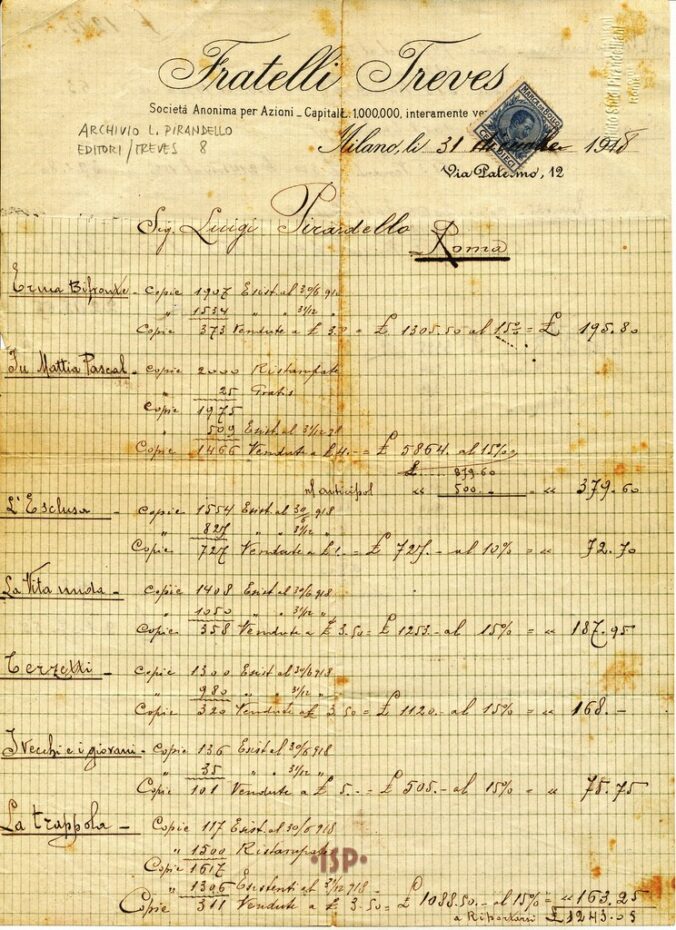 Fratelli Treves
Società Anonima per Azioni - Capitale L. 1.000,000, interamente ve
MARCA DA BOLLO
CENT. DIECI
ARCHIVIO L. PIRANDELLO
EDITORI/TREVES 8
Milano, li 31 1918
Via Palermo, 12
Sig. Luigi Pirandello
Roma
Erma Bifronte - Copie 1907 Esist. al 30/6 918
" 1534 " " 31/12 "
Copie 373 Vendute a £ 3.50 = £ 1305.50 al 15% = £ 195.80
Fu Mattia Pascal - Copie 2000 Ristampate
" 25 Gratis
Copie 1975
" 509 Esist. al 31/12 18
Copie 1466 Vendute a £ 4.- = £ 5864. al 15%
£ 879.60
" 500.- " 379.60
L'Esclusa - Copie 1554 Esist al 30/6 918
" 827 " " 31/12 "
Copie 727 Vendute a £ 1.- = £ 727.- al 10% = " 72.70
La Vita nuda - Copie 1408 Esist al 30/6 918
" 1050 " " 31/12 "
Copie 358 Vendute a £ 3.50 = £ 1253.- al 15% = " 187.95
Terzetti - Copie 1300 Esist al 30/6 918
" 980 " " 31/12 "
Copie 320 Vendute a £ 3.50 = £ 1120.- al 15% = " 168.-
I Vecchi e i giovani - Copie 136 Esist al 30/6 918
" 35 " " 31/12 "
Copie 101 Vendute a £ 5.- = £ 505.- al 15% = " 75.75
La trappola - Copie 117 Esist al 30/6 918
" 1500 Ristampate
Copie 1617
" 1306 Esistenti al 31/12 918 -
Copie 311 Vendute a £ 3.50 = £ 1088.50 - al 15% = " 163.25
a Riportarsi £ 1243.05
ISP